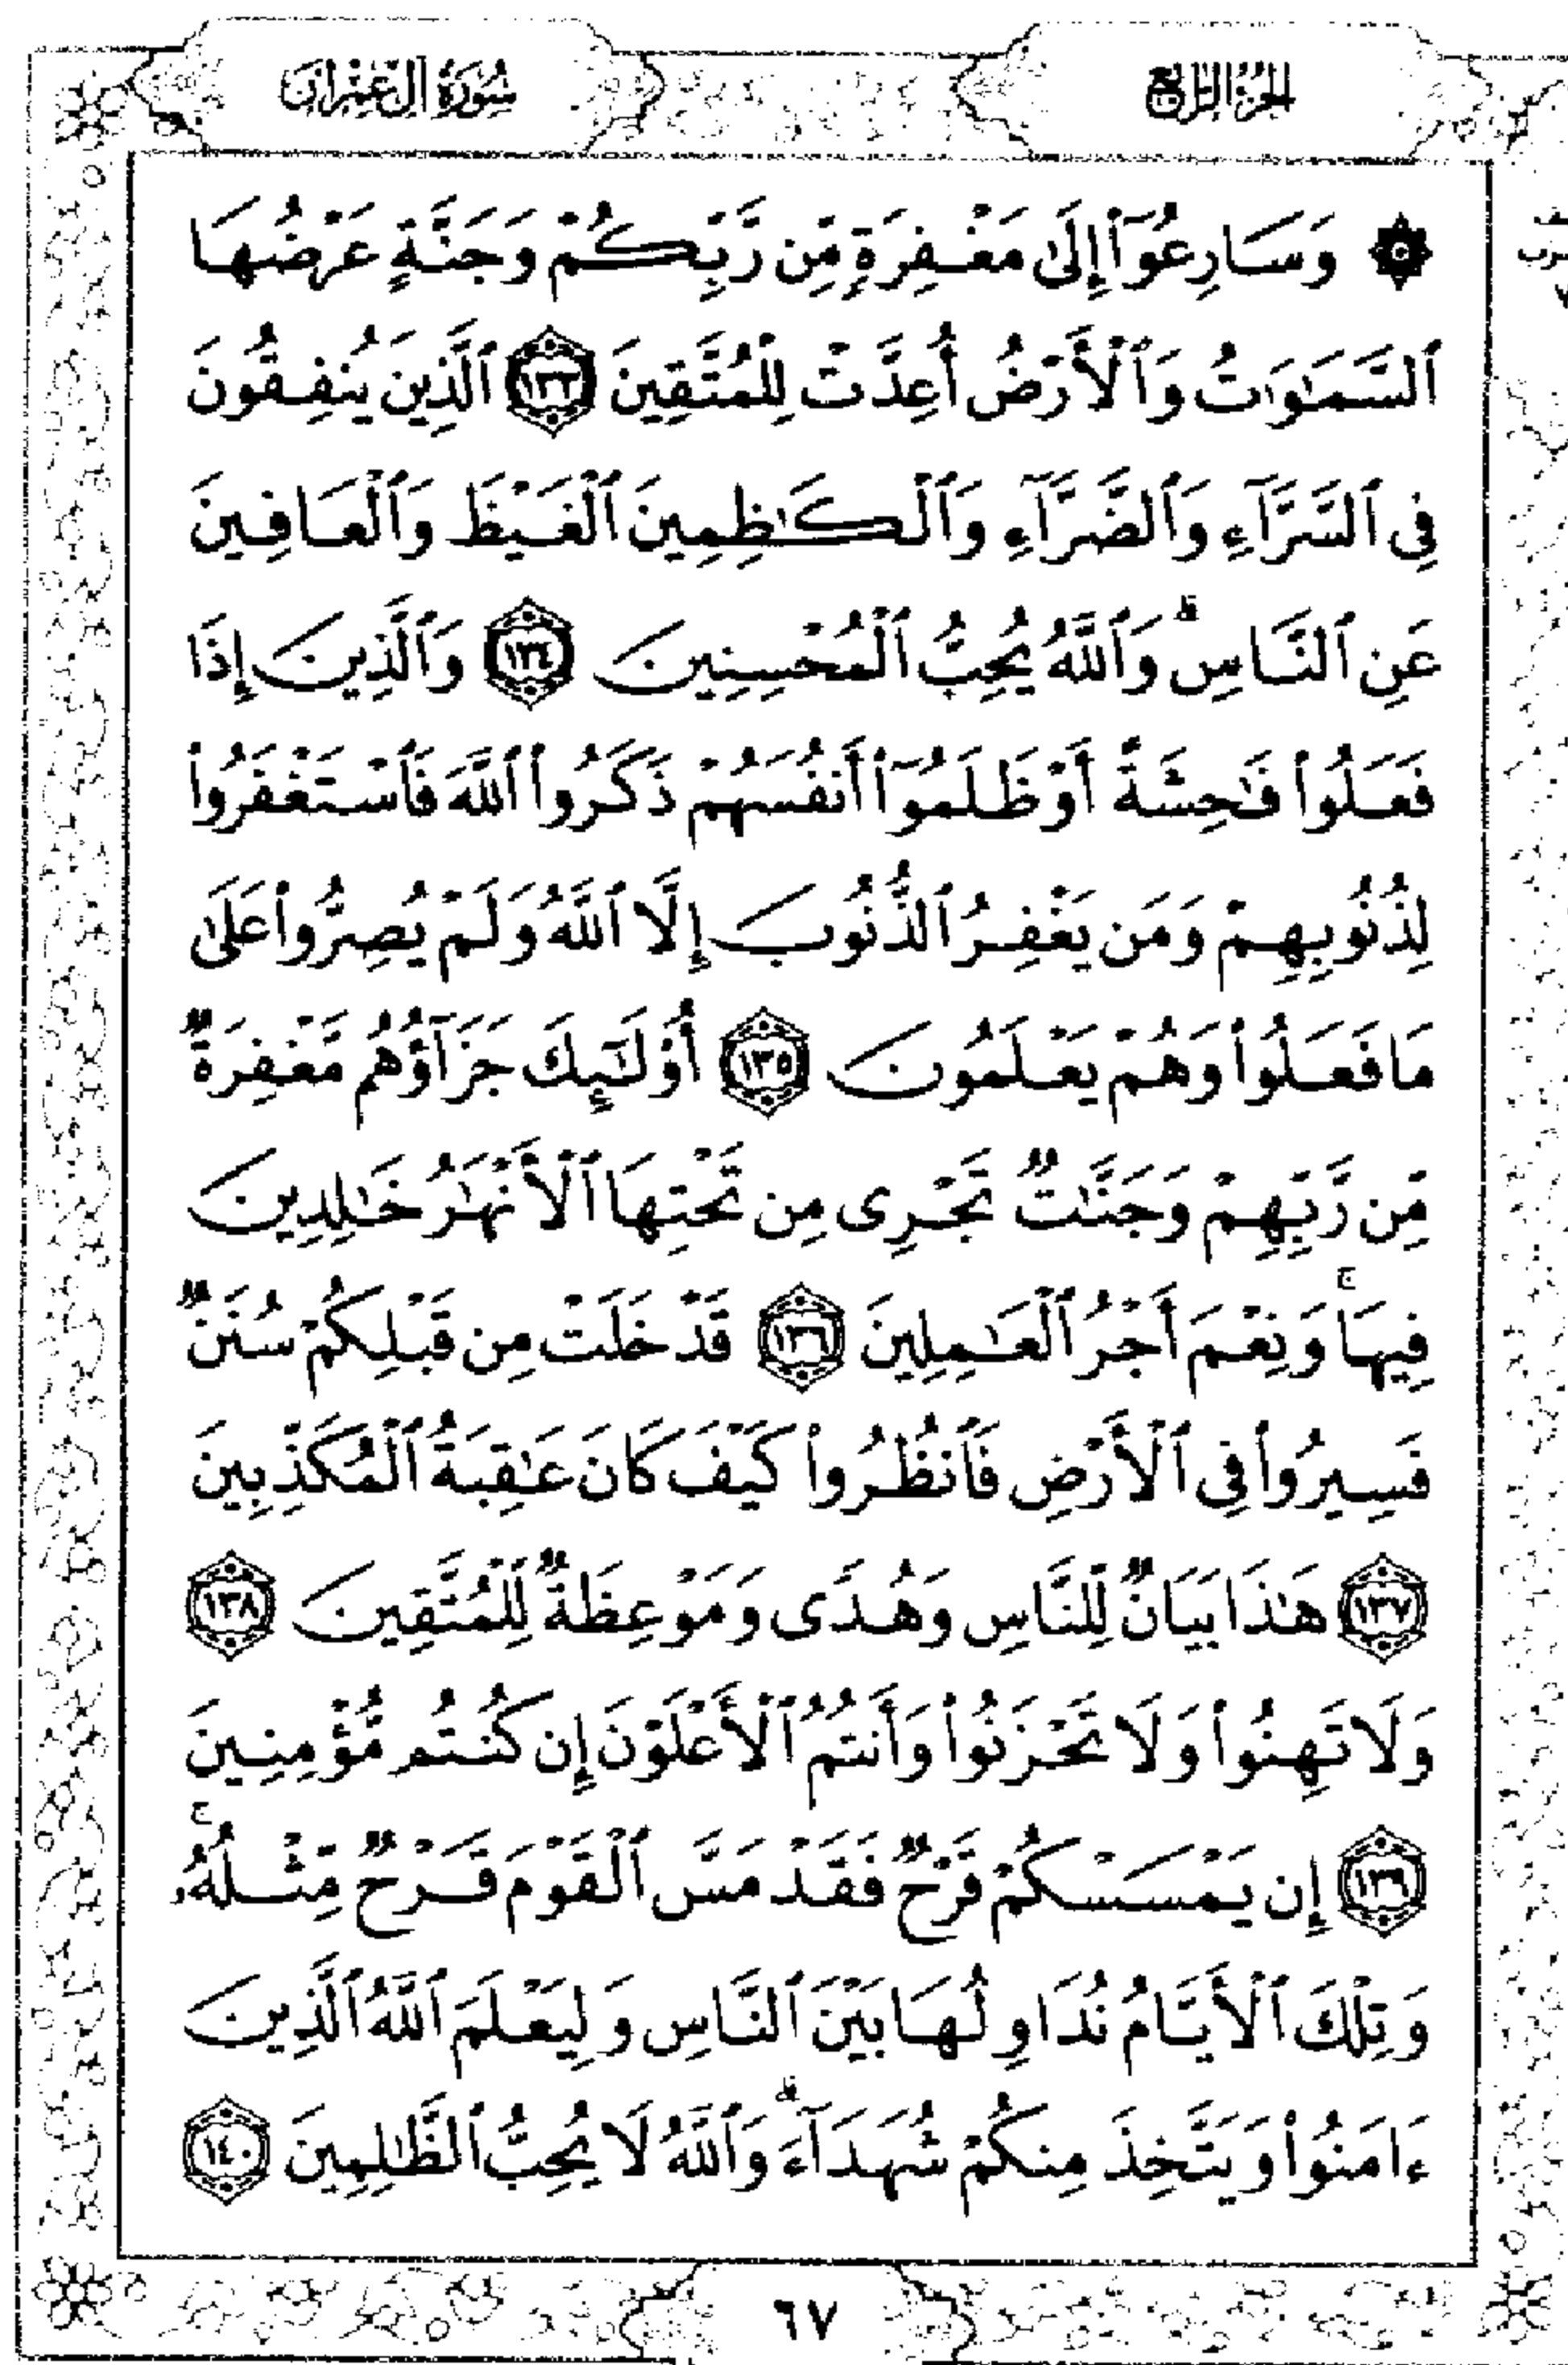 الجزء الرابع
سورة آل عمران
۞ وَسَارِعُوٓا۟ إِلَىٰ مَغْفِرَةٍ مِّن رَّبِّكُمْ وَجَنَّةٍ عَرْضُهَا
ٱلسَّمَـٰوَٰتُ وَٱلْأَرْضُ أُعِدَّتْ لِلْمُتَّقِينَ ١٣٣ ٱلَّذِينَ يُنفِقُونَ
فِى ٱلسَّرَّآءِ وَٱلضَّرَّآءِ وَٱلْكَـٰظِمِينَ ٱلْغَيْظَ وَٱلْعَافِينَ
عَنِ ٱلنَّاسِ ۗ وَٱللَّهُ يُحِبُّ ٱلْمُحْسِنِينَ ١٣٤ وَٱلَّذِينَ إِذَا
فَعَلُوا۟ فَـٰحِشَةً أَوْ ظَلَمُوٓا۟ أَنفُسَهُمْ ذَكَرُوا۟ ٱللَّهَ فَٱسْتَغْفَرُوا۟
لِذُنُوبِهِمْ وَمَن يَغْفِرُ ٱلذُّنُوبَ إِلَّا ٱللَّهُ وَلَمْ يُصِرُّوا۟ عَلَىٰ
مَا فَعَلُوا۟ وَهُمْ يَعْلَمُونَ ١٣٥ أُو۟لَـٰٓئِكَ جَزَآؤُهُم مَّغْفِرَةٌ
مِّن رَّبِّهِمْ وَجَنَّـٰتٌ تَجْرِى مِن تَحْتِهَا ٱلْأَنْهَـٰرُ خَـٰلِدِينَ
فِيهَا ۚ وَنِعْمَ أَجْرُ ٱلْعَـٰمِلِينَ ١٣٦ قَدْ خَلَتْ مِن قَبْلِكُمْ سُنَنٌ
فَسِيرُوا۟ فِى ٱلْأَرْضِ فَٱنظُرُوا۟ كَيْفَ كَانَ عَـٰقِبَةُ ٱلْمُكَذِّبِينَ
١٣٧ هَـٰذَا بَيَانٌ لِّلنَّاسِ وَهُدًى وَمَوْعِظَةٌ لِّلْمُتَّقِينَ ١٣٨
وَلَا تَهِنُوا۟ وَلَا تَحْزَنُوا۟ وَأَنتُمُ ٱلْأَعْلَوْنَ إِن كُنتُم مُّؤْمِنِينَ
١٣٩ إِن يَمْسَسْكُمْ قَرْحٌ فَقَدْ مَسَّ ٱلْقَوْمَ قَرْحٌ مِّثْلُهُۥ ۚ
وَتِلْكَ ٱلْأَيَّامُ نُدَاوِلُهَا بَيْنَ ٱلنَّاسِ وَلِيَعْلَمَ ٱللَّهُ ٱلَّذِينَ
ءَامَنُوا۟ وَيَتَّخِذَ مِنكُمْ شُهَدَآءَ ۗ وَٱللَّهُ لَا يُحِبُّ ٱلظَّـٰلِمِينَ ١٤٠
٦٧